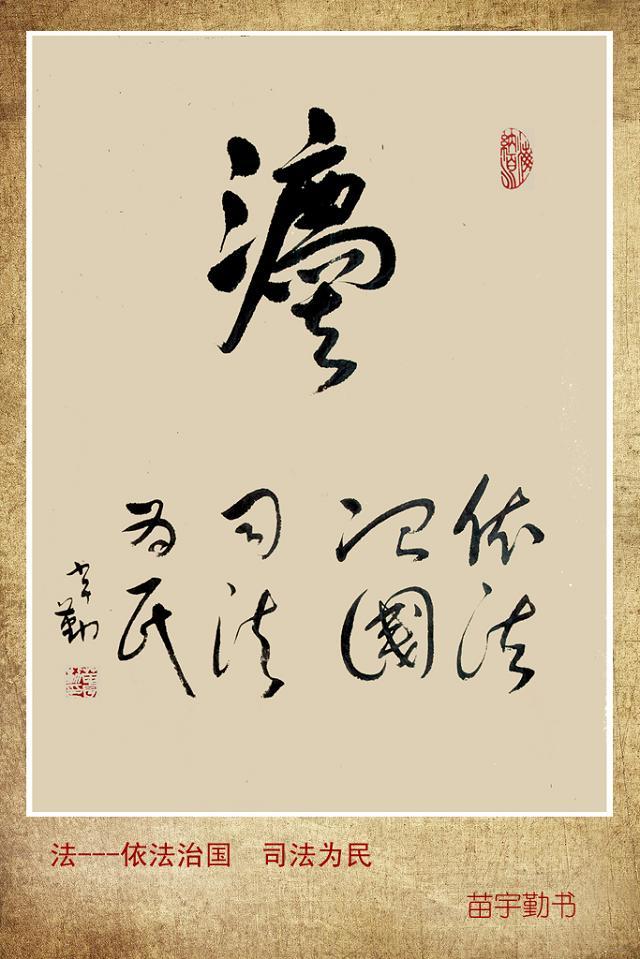 灋
依法
治國
司法
为民
宇勤
法---依法治国 司法为民
苗宇勤书